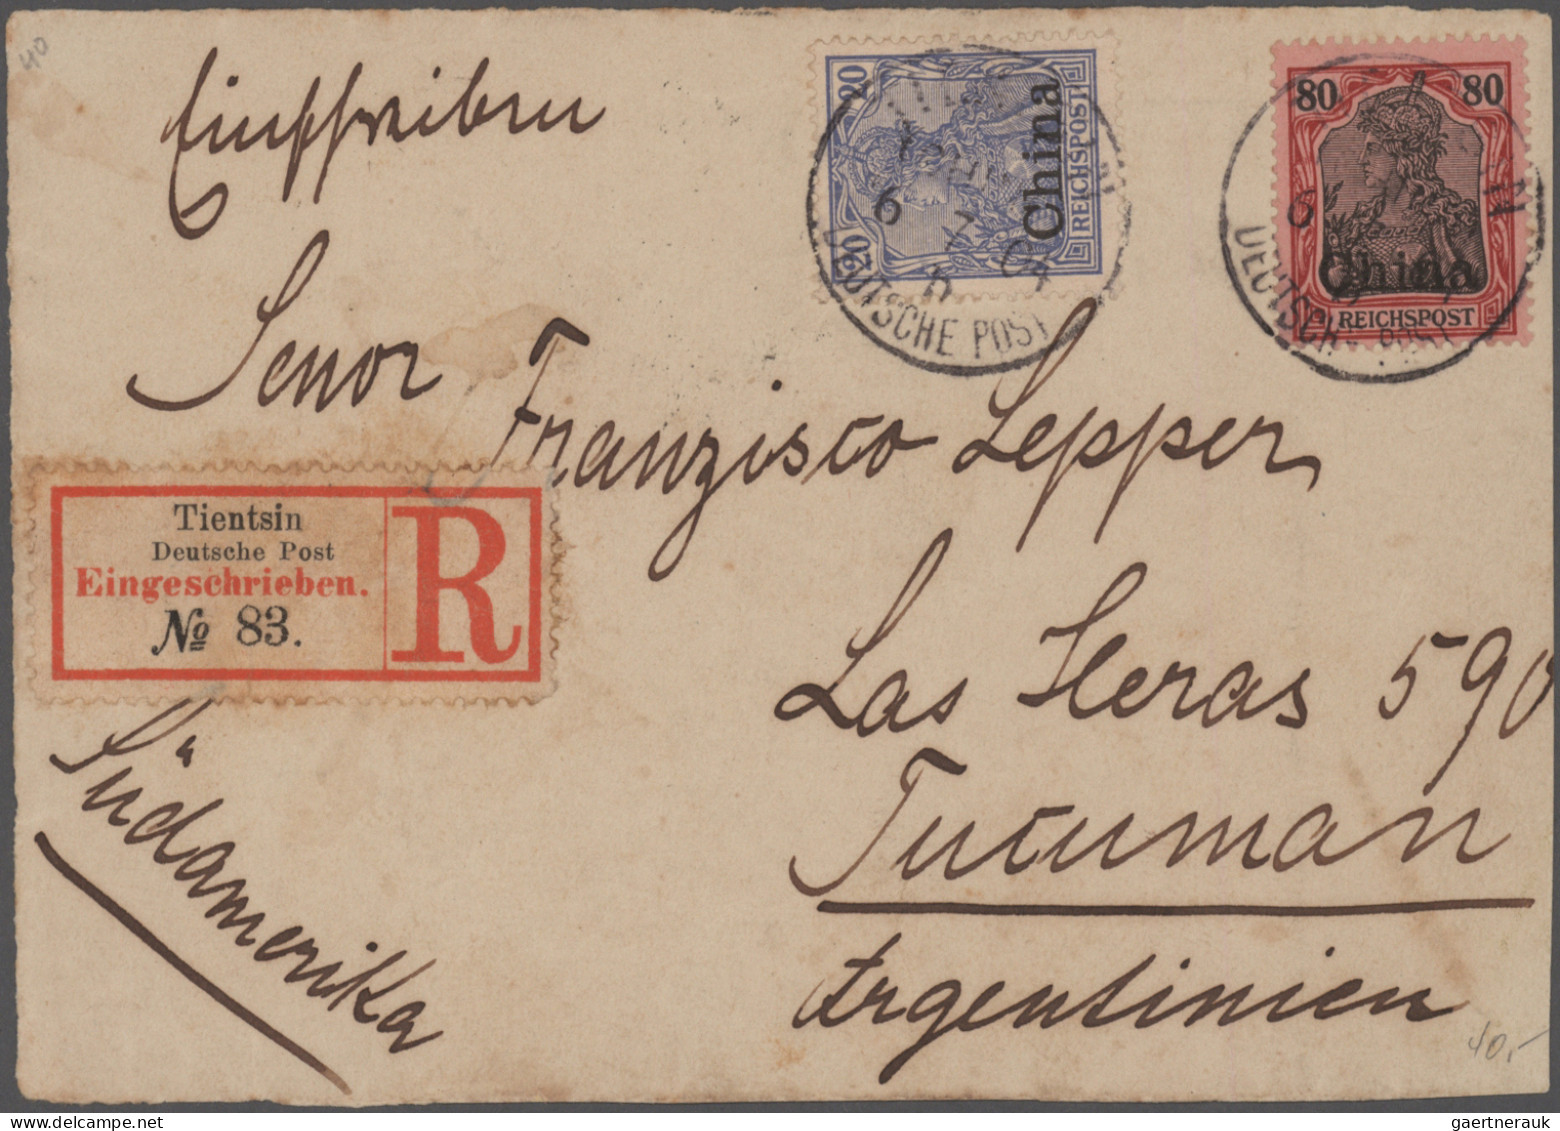 40
Einschreiben
20
20
China
REICHSPOST
6 7 04
DEUTSCHE POST
80
80
China
REICHSPOST
6
DEUTSCHE POST
Senor
Franzisco Lepper
Tientsin
Deutsche Post
Eingeschrieben.
№ 83.
R
Las Heras 590
Tucuman
Argentinien
Südamerika
40,-
gaertnerauk